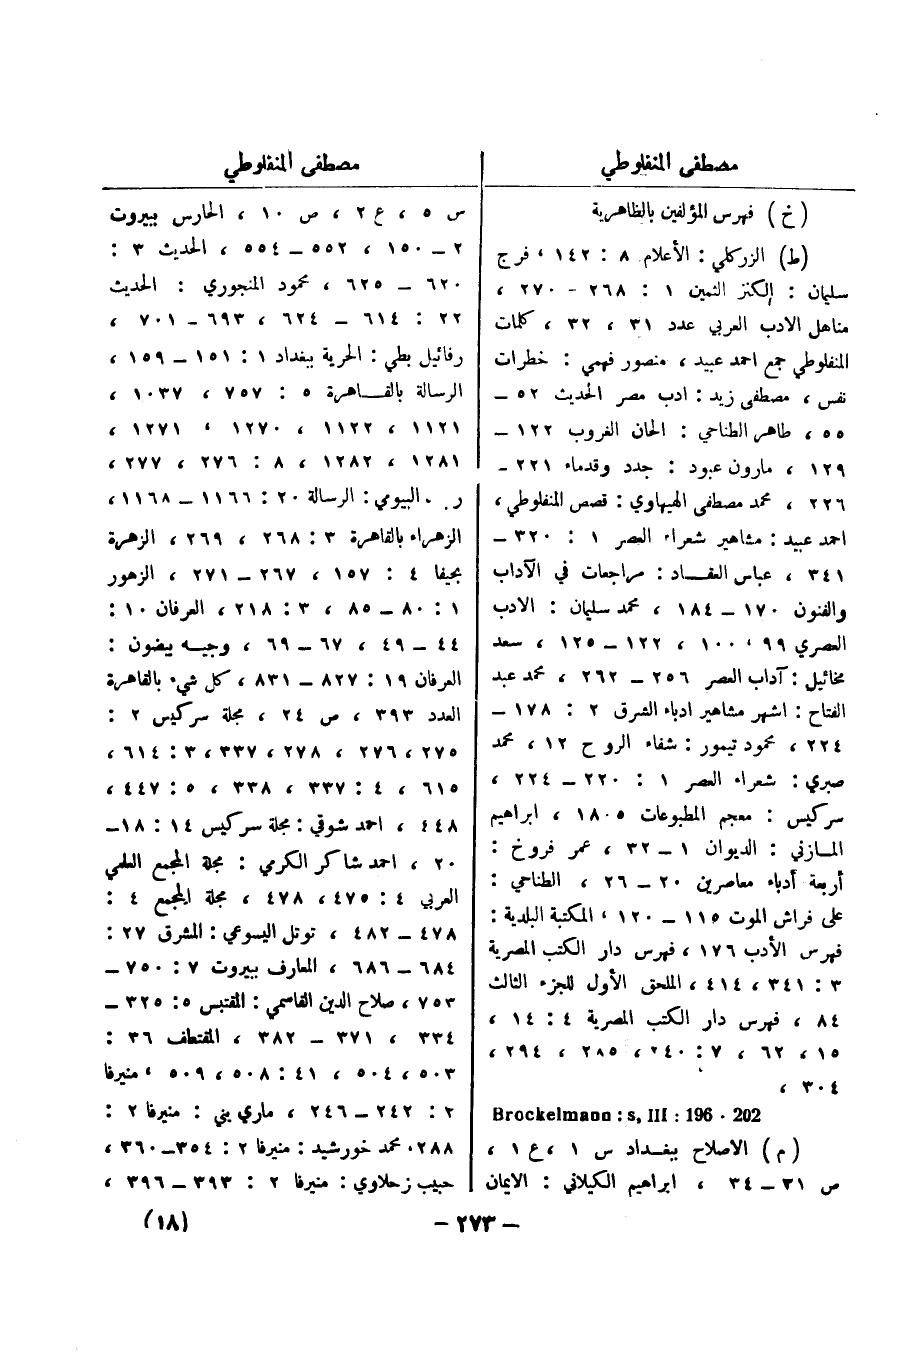 مصطفى المنفلوطي
(خ) فهرس المؤلفين بالظاهرية
(ط) الزركلي : الأعلام ٨ : ١٤٢ ، فرج
سليمان : الكنز الثمين ١ : ٢٦٨ - ٢٧٠ ،
مناهل الادب العربي عدد ٣١ ، ٣٢ ، كلمات
المنفلوطي جمع احمد عبيد ، منصور فهمي : خطرات
نفس ، مصطفى زيد : ادب مصر الحديث ٥٢ ــ
٥٥ ، طاهر الطناحي : الحان الغروب ١٢٢ ــ
١٢٩ ، مارون عبود : جدد وقدماء ٢٢١ -
٢٢٦ ، محمد مصطفى الهيهاوي : قصص المنفلوطي ،
احمد عبيد : مشاهير شعراء العصر ١ : ٣٢٠ ــ
٣٤١ ، عباس العقـــاد : مراجعات في الآداب
والفنون ١٧٠ ــ ١٨٤ ، محمد سليمان : الادب
العصري ٩٩ ، ١٠٠ ، ١٢٢ ــ ١٢٥ ، سعد
مخائيل : آداب العصر ٢٥٦ ــ ٢٦٢ ، محمد عبد
الفتاح : اشهر مشاهير ادباء الشرق ٢ : ١٧٨ ــ
٢٢٤ ، محمود تيمور : شفاء الروح ١٢ ، محمد
صبري : شعراء العصر ١ : ٢٢٠ ــ ٢٢٤ ،
سركيس : معجم المطبوعات ١٨٠٥ ، ابراهيم
المـازني : الديوان ١ ــ ٣٢ ، عمر فروخ :
أربعة أدباء معاصرين ٢٠ ــ ٢٦ ، الطناحي :
على فراش الموت ١١٥ ــ ١٢٠ ، المكتبة البلدية :
فهرس الأدب ١٧٦ ، فهرس دار الكتب المصرية
٣ : ٣٤١ ، ٤١٤ ، الملحق الأول للجزء الثالث
٨٤ ، فهرس دار الكتب المصرية ٤ : ١٤ ،
١٥ ، ٦٢ ، ٧ : ٢٤٠ ، ٢٨٥ ، ٢٩٤ ،
٣٠٤ ،
Brockelmann : s, III : 196 - 202
(م) الاصلاح ببغـــداد س ١ ، ع ١ ،
ص ٣١ ــ ٣٤ ، ابراهيم الكيلاني : الايمان
مصطفى المنفلوطي
س ٥ ، ع ٢ ، ص ١٠ ، الحارس ببيروت
٢ ــ ١٥٠ ، ٥٥٢ ــ ٥٥٤ ، الحديث ٣ :
٦٢٠ ــ ٦٢٥ ، محمود المنجوري : الحديث
٢٢ : ٦١٤ ــ ٦٢٤ ، ٦٩٣ ــ ٧٠١ ،
رفائيل بطي : الحرية ببغداد ١ : ١٥١ ــ ١٥٩ ،
الرسالة بالقـــاهرة ٥ : ٧٥٧ ، ١٠٣٧ ،
١١٢١ ، ١١٢٢ ، ١٢٧٠ ، ١٢٧١ ،
١٢٨١ ، ١٢٨٢ ، ٨ : ٢٧٦ ، ٢٧٧ ،
ر . البيومي : الرسالة ٢٠ : ١١٦٦ ــ ١١٦٨ ،
الزهراء بالقاهرة ٣ : ٢٦٨ ، ٢٦٩ ، الزهرة
بحيفا ٤ : ١٥٧ ، ٢٦٧ ــ ٢٧١ ، الزهور
١ : ٨٠ ــ ٨٥ ، ٣ : ٢١٨ ، العرفان ١٠ :
٤٤ ــ ٤٩ ، ٦٧ ــ ٦٩ ، وجيـــه بيضون :
العرفان ١٩ : ٨٢٧ ــ ٨٣١ ، كل شيء بالقاهرة
العدد ٣٩٣ ، ص ٢٤ ، مجلة سركيس ٢ :
٢٧٥ ، ٢٧٦ ، ٢٧٨ ، ٣٣٧ ، ٣ : ٦١٤ ،
٦١٥ ، ٤ : ٣٣٧ ، ٣٣٨ ، ٥ : ٤٤٧ ،
٤٤٨ ، احمد شوقي : مجلة سركيس ١٤ : ١٨ ــ
٢٠ ، احمد شاكر الكرمي : مجلة المجمع العلمي
العربي ٤ : ٤٧٥ ، ٤٧٨ ، مجلة المجمع ٤ :
٤٧٨ ــ ٤٨٢ ، توتل اليسوعي : المشرق ٢٧ :
٦٨٤ ــ ٦٨٦ ، المعارف ببيروت ٧ : ٧٥٠ ــ
٧٥٣ ، صلاح الدين القاسمي : المقتبس ٥ : ٣٢٥ ــ
٣٣٤ ، ٣٧١ ــ ٣٨٢ ، المقتطف ٣٦ :
٥٠٣ ، ٥٠٤ ، ٤١ : ٥٠٨ ، ٥٠٩ ، منيرفا
٢ : ٢٤٢ ــ ٢٤٦ ، ماري يني : منيرفا ٢ :
٢٨٨ ، محمد خورشيد : منيرفا ٢ : ٣٥٤ ــ ٣٦٠ ،
حبيب زحلاوي : منيرفا ٢ : ٣٩٣ ــ ٣٩٦ ،
ــ ٢٧٣ ــ
(١٨)